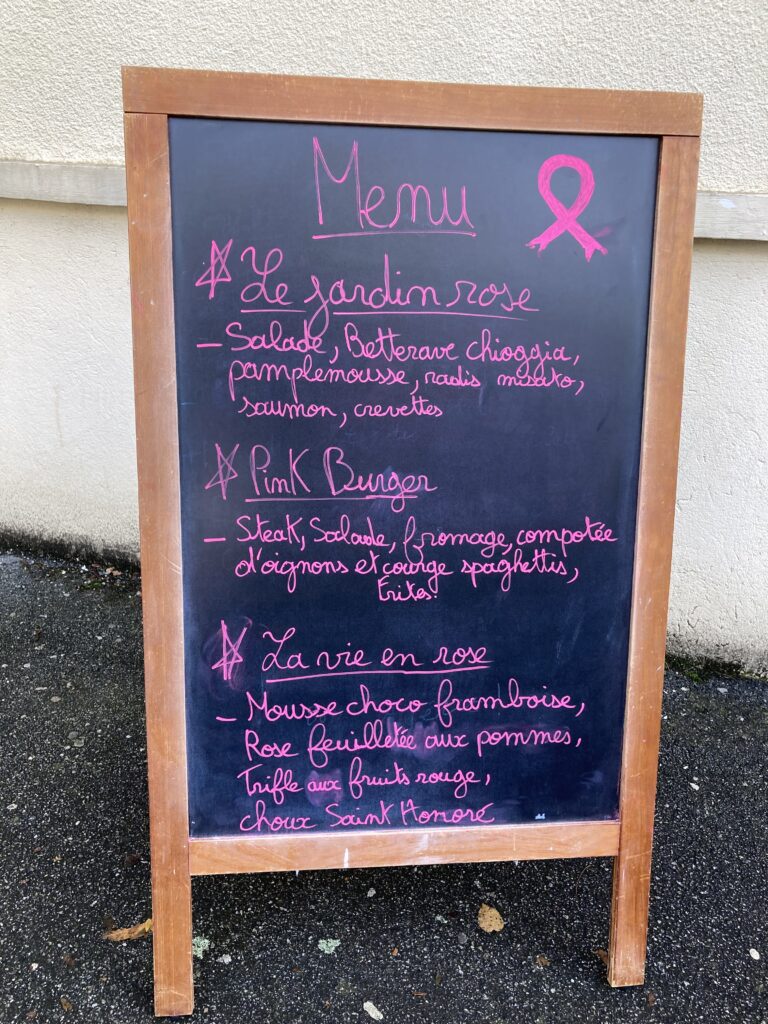 Menu
Le jardin rose
- Salade, Betterave chioggia,
pamplemousse, radis misato,
saumon, crevettes
Pink Burger
- Steak, Salade, fromage, compotée
d'oignons et courge spaghettis,
Frites.
La vie en rose
- Mousse choco framboise,
Rose feuilletée aux pommes,
Trifle aux fruits rouge,
choux Saint Honoré